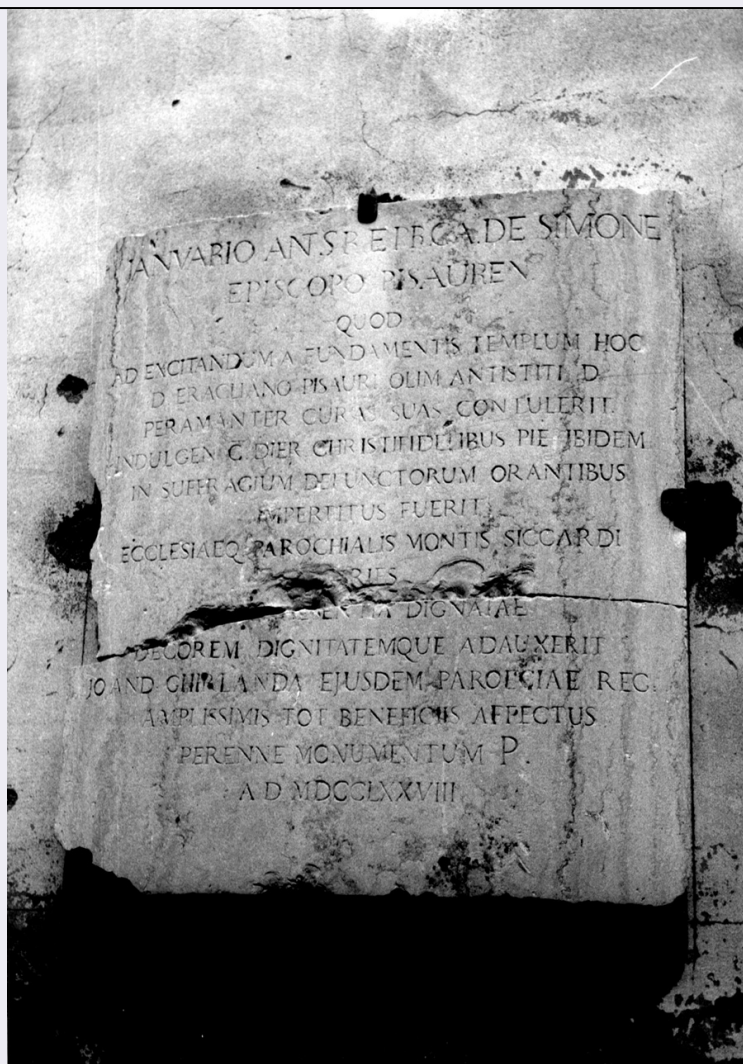 IANVARIO ANT. DE SIMONE
EPISCOPO PISAUREN
QUOD
AD EXCITANDUM A FUNDAMENTIS TEMPLUM HOC
D ERACLIANO PISAURI OLIM ANTISTITI D
PERAMANTER CURAS SUAS CONTULERIT
INDULGEN C DIER CHRISTIFIDELIBUS PIE IBIDEM
IN SUFFRAGIUM DEFUNCTORUM ORANTIBUS
IMPERTITUS FUERIT
ECCLESIAEQ PAROCHIALIS MONTIS SICCARDI
DIGNATAE
DECOREM DIGNITATEMQUE ADAUXERIT
JO AND GHIRLANDA EJUSDEM PAROECIAE REC.
AMPLISSIMIS TOT BENEFICIIS AFFECTUS
PERENNE MONUMENTUM P.
A D MDCCLXXVIII